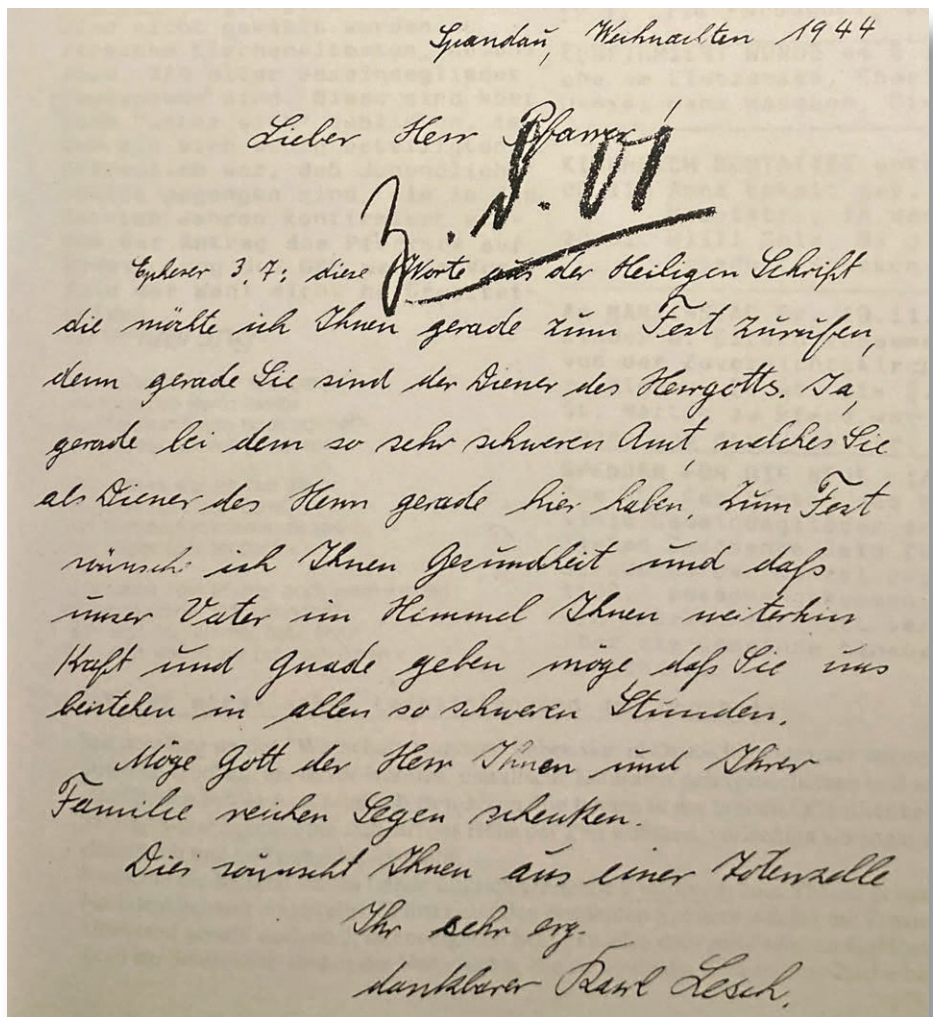 Spandau, Weihnachten 1944
Lieber Herr Pfarrer!
z. d. A.
Epheser 3, 7: diese Worte aus der Heiligen Schrift
die möchte ich Ihnen gerade zum Fest zurufen,
denn gerade Sie sind der Diener des Herrgotts. Ja,
gerade bei dem so sehr schweren Amt, welches Sie
als Diener des Herrn gerade hier haben. Zum Fest
wünsche ich Ihnen Gesundheit und daß
unser Vater im Himmel Ihnen weiterhin
Kraft und Gnade geben möge daß Sie uns
beistehen in allen so schweren Stunden.
Möge Gott der Herr Ihnen und Ihrer
Familie reichen Segen schenken.
Dies wünscht Ihnen aus einer Totenzelle
Ihr sehr erg.
dankbarer Karl Lesch.